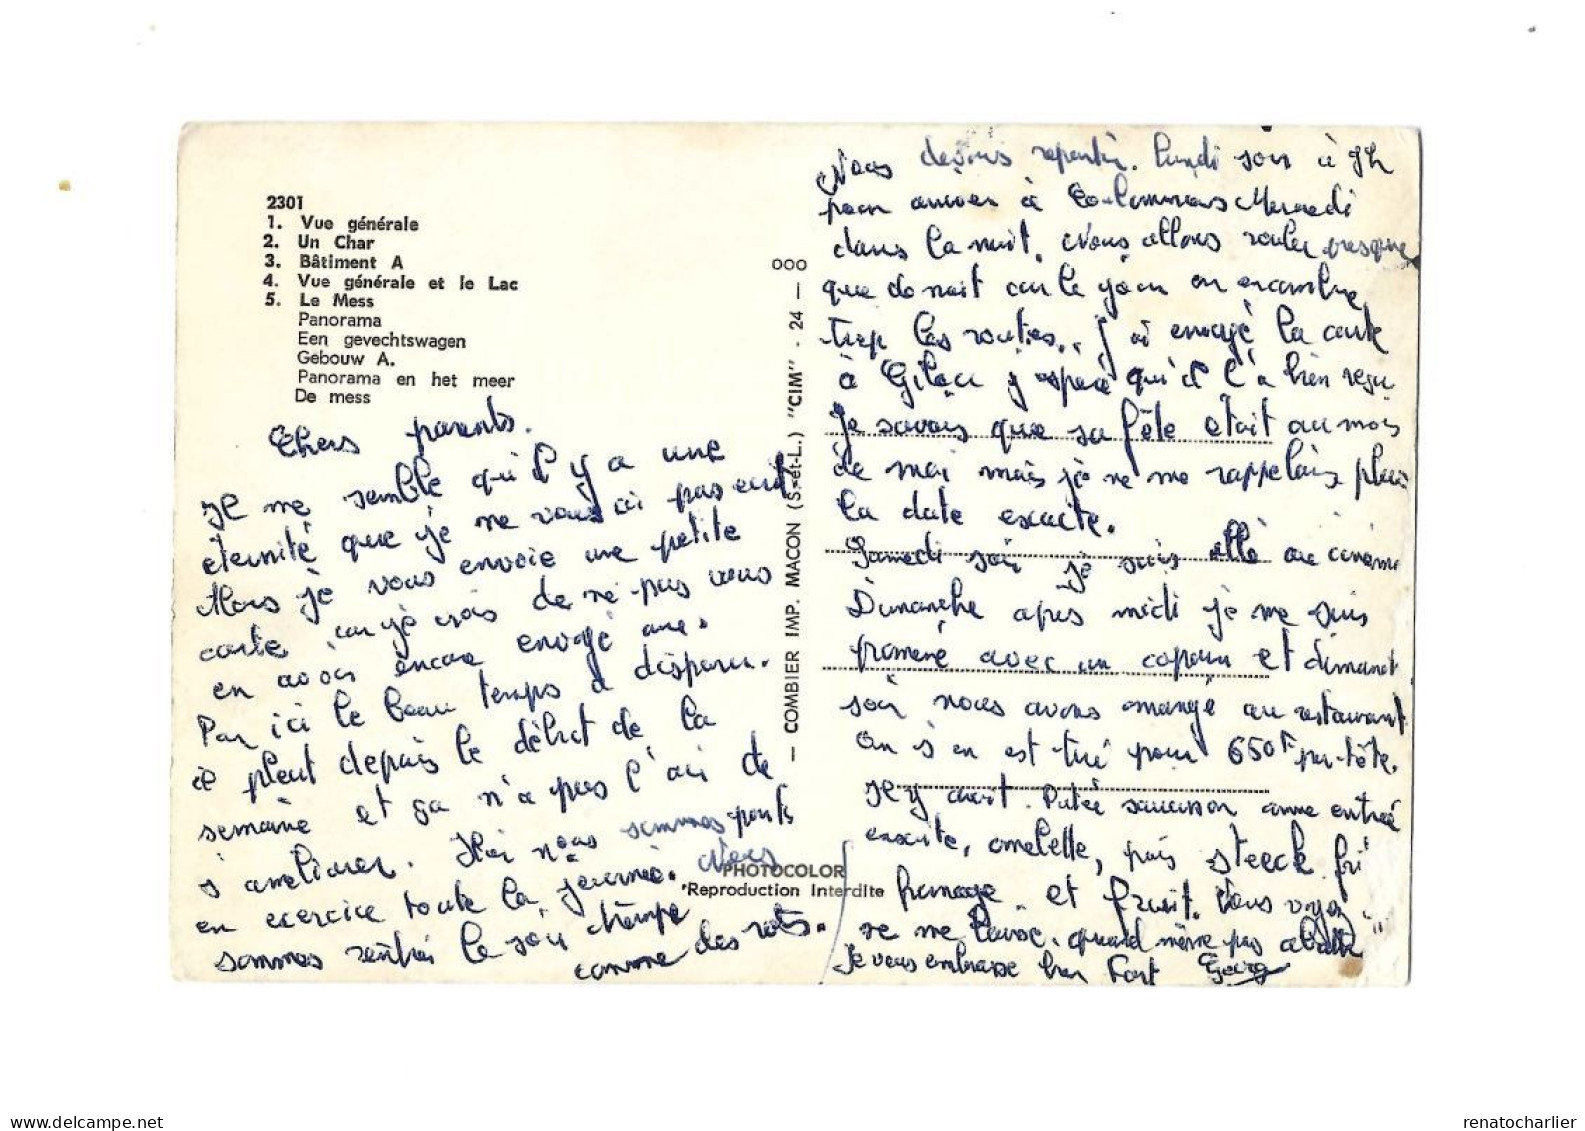 2301
1. Vue générale
2. Un Char
3. Bâtiment A
4. Vue générale et le Lac
5. Le Mess
Panorama
Een gevechtswagen
Gebouw A.
Panorama en het meer
De mess
Chers parents.
Il me semble qu'il y a une
éternité que je ne vous ai pas écrit
Alors je vous envoie une petite
carte car je crois de ne pas vous
en avoir encore envoyé une.
Par ici le beau temps a disparu.
il pleut depuis le début de la
semaine et ça n'a pas l'air de
s'améliorer. Hier nous sommes partis
en exercice toute la journée. Nous
sommes rentrés le soir trempé
comme des rats.
— COMBIER IMP. MACON (S.-et-L.) "CIM" - 24 — 000
PHOTOCOLOR
Reproduction Interdite
Nous devons repartir. lundi soir à 9h
pour arriver à Mercredi
dans la nuit. Nous allons rouler presque
que de nuit car le jour on encombre
trop les routes. J'ai envoyé la carte
à j'espère qu'il l'a bien reçu
Je savais que sa fête était au mois
de mai mais je ne me rappelais plus
la date exacte.
Samedi soir je suis allé au cinéma
Dimanche apres midi je me suis
promené avec un copain et dimanch
soir nous avons mangé au restaurant
On s'en est tiré pour 650F par tête.
Il y avait. Patée saucisson comme entrée
ensuite, omelette, puis steeck fri
fromage. et fruit. Vous voyez
je me laisse. quand même pas abattre
Je vous embrasse bien fort Georg
renatocharlier